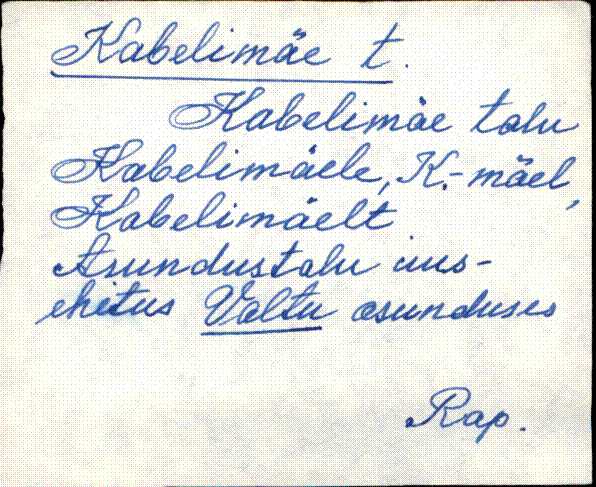 Kabelimäe t.
Kabelimäe talu
Kabelimäele, K.-mäel,
Kabelimäelt
Asundustalu uus-
ehitus Valtu asunduses
Rap.